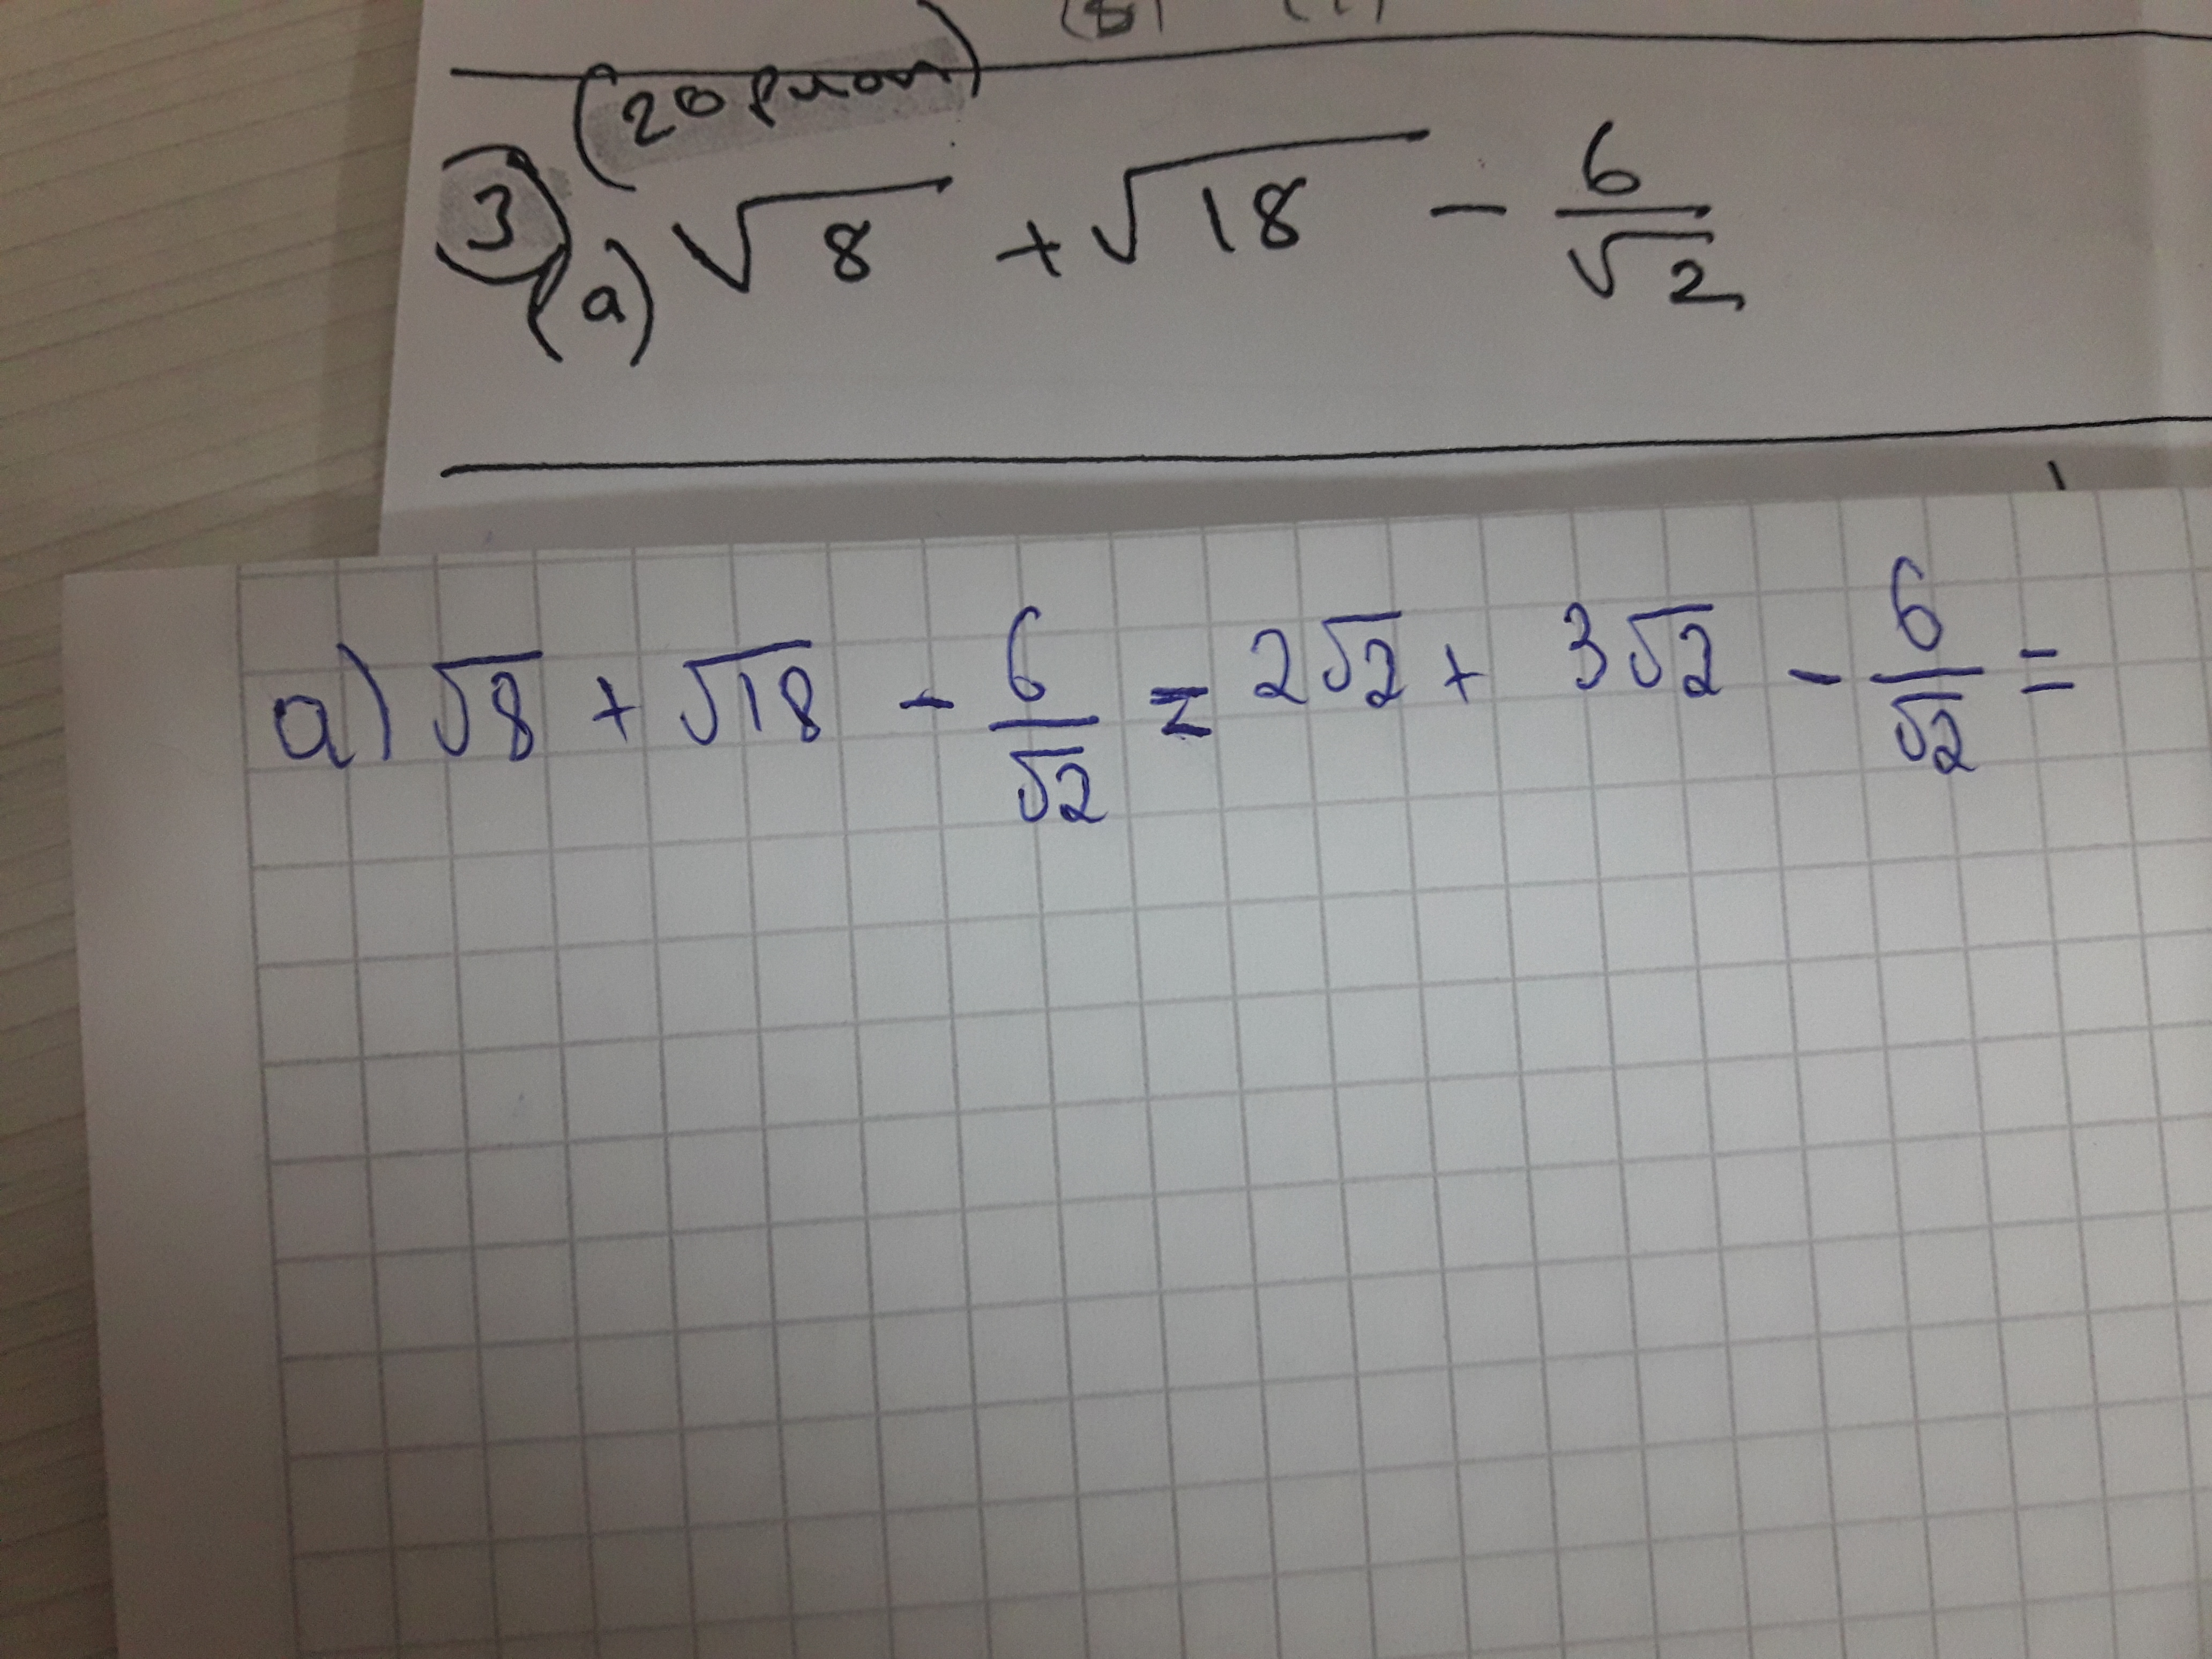 (20 puan)
3
(a) √8 + √18 - 6/√2
a) √8 + √18 - 6/√2 = 2√2 + 3√2 - 6/√2 =